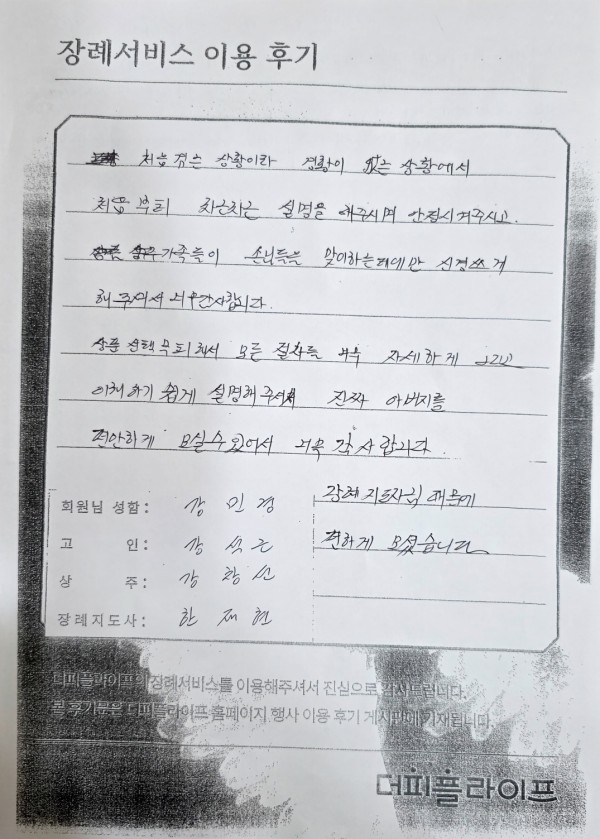 장례서비스 이용 후기
처음 겪는 상황이라 경황이 없는 상황에서
처음부터 차근차근 설명을 해주시며 안정시켜주시고.
가족들이 손님들을 맞이하는데에만 신경쓰게
해주셔서 너무 감사합니다.
상품 선택부터해서 모든 절차를 아주 자세하게 그리고
이해하기 쉽게 설명해주셔서 진짜 아버지를
편안하게 모실수 있어서 너무 감사합니다.
장례지도사님 때문에
편하게 모셨습니다
회원님 성함: 강민경
고 인: 강석근
상 주: 강창선
장례지도사: 한재현
더피플라이프의 장례서비스를 이용해주셔서 진심으로 감사드립니다.
본 후기문은 더피플라이프 홈페이지 행사 이용 후기 게시판에 기재됩니다.
더피플라이프